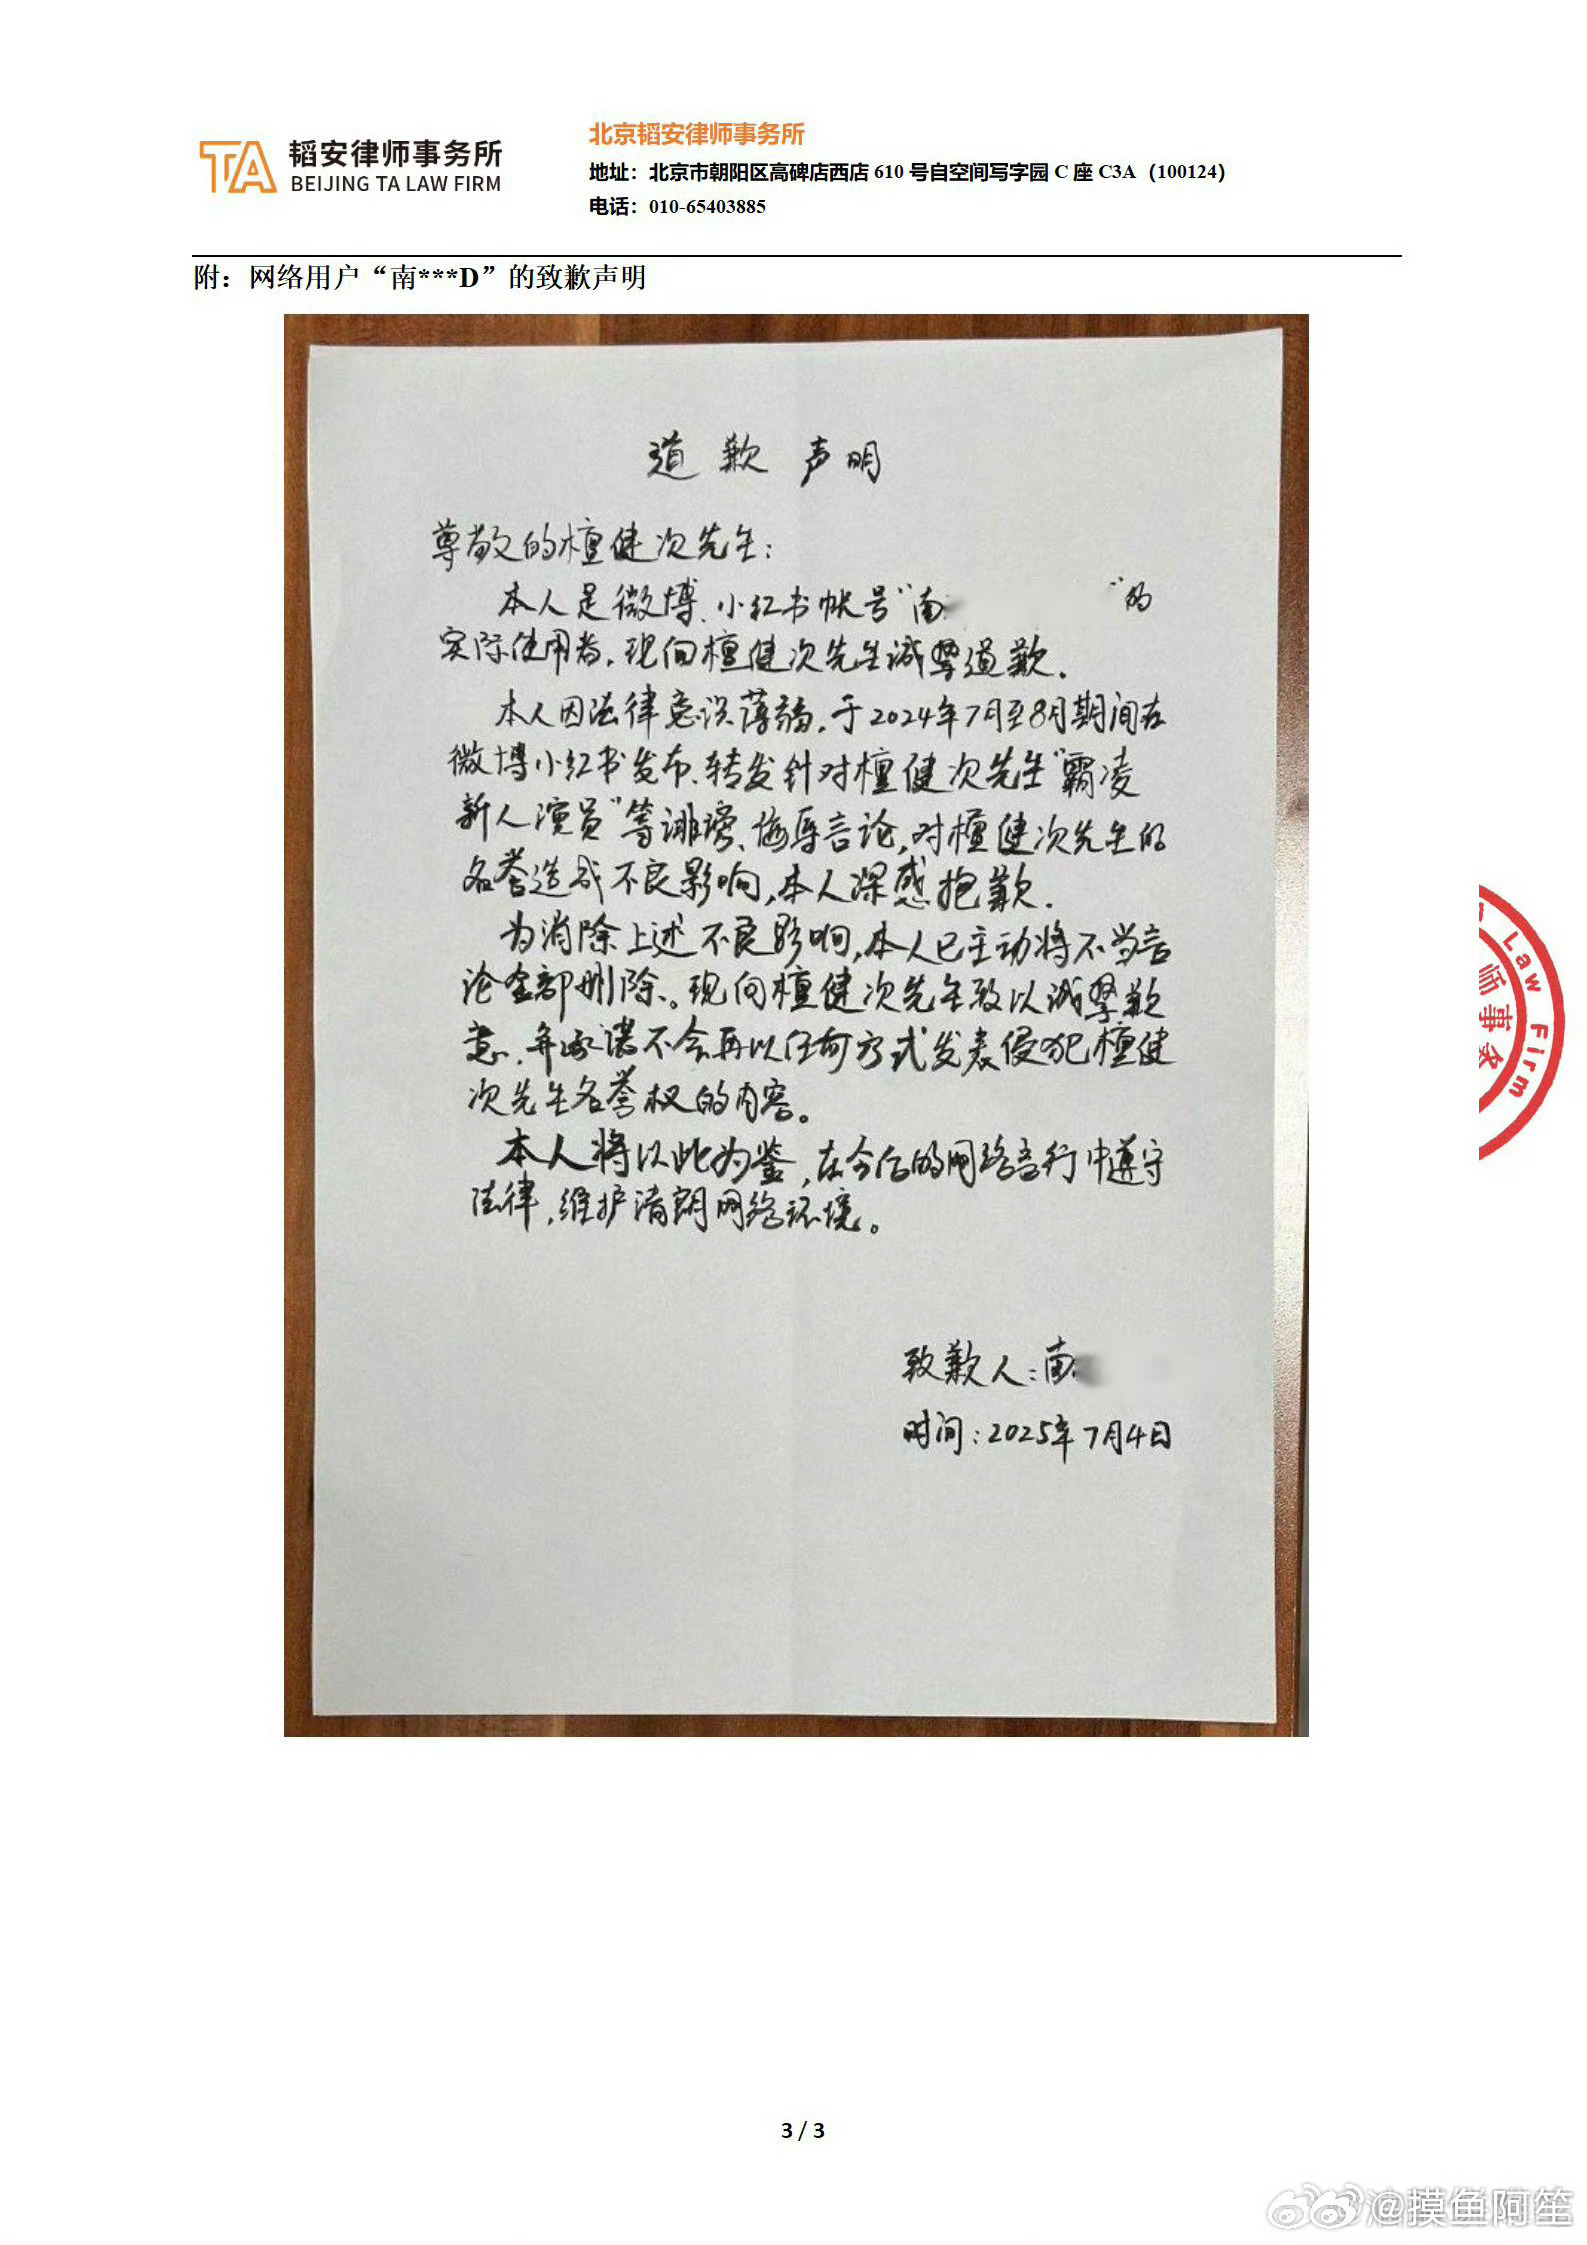 TA 韬安律师事务所
BEIJING TA LAW FIRM
北京韬安律师事务所
地址：北京市朝阳区高碑店西店 610 号自空间写字园 C 座 C3A（100124）
电话：010-65403885
附：网络用户“南***D”的致歉声明
道歉声明
尊敬的檀健次先生：
本人是微博、小红书帐号“南 ”的
实际使用者，现向檀健次先生诚挚道歉．
本人因法律意识薄弱，于2024年7月至8月期间在
微博小红书发布、转发针对檀健次先生“霸凌
新人演员”等诽谤、侮辱言论，对檀健次先生的
名誉造成不良影响，本人深感抱歉．
为消除上述不良影响，本人已主动将不当言
论全部删除。现向檀健次先生致以诚挚歉
意，并承诺不会再以任何方式发表侵犯檀健
次先生名誉权的内容。
本人将以此为鉴，在今后的网络言行中遵守
法律，维护清朗网络环境。
致歉人：南
时间：2025年7月4日
Law Firm
师事务
3 / 3
@摸鱼阿笙